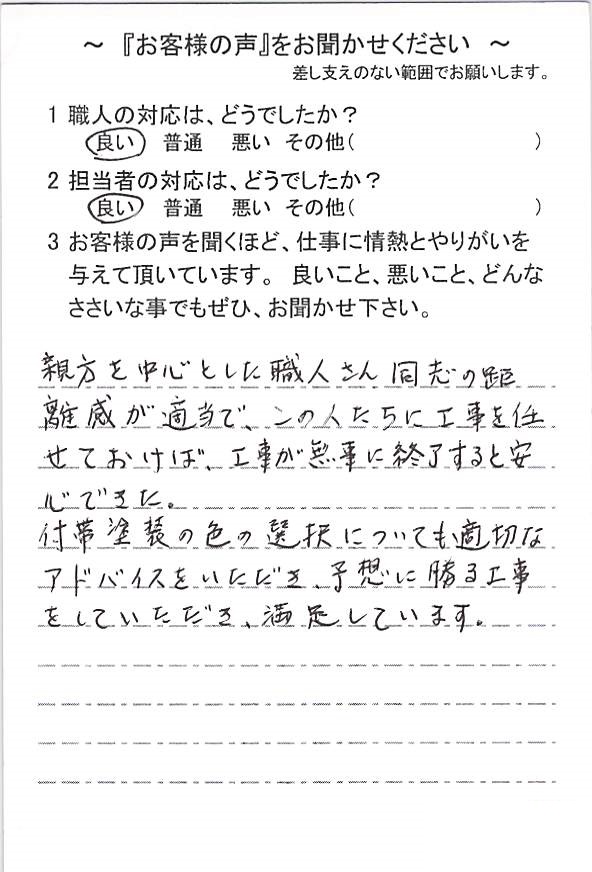 ～ 『お客様の声』をお聞かせください ～
差し支えのない範囲でお願いします。
1 職人の対応は、どうでしたか？
良い 普通 悪い その他( )
2 担当者の対応は、どうでしたか？
良い 普通 悪い その他( )
3 お客様の声を聞くほど、仕事に情熱とやりがいを
与えて頂いています。 良いこと、悪いこと、どんな
ささいな事でもぜひ、お聞かせ下さい。
親方を中心とした職人さん同志の距
離感が適当で、この人たちに工事を任
せておけば、工事が無事に終了すると安
心できた。
付帯塗装の色の選択についても適切な
アドバイスをいただき、予想に勝る工事
をしていただき、満足しています。